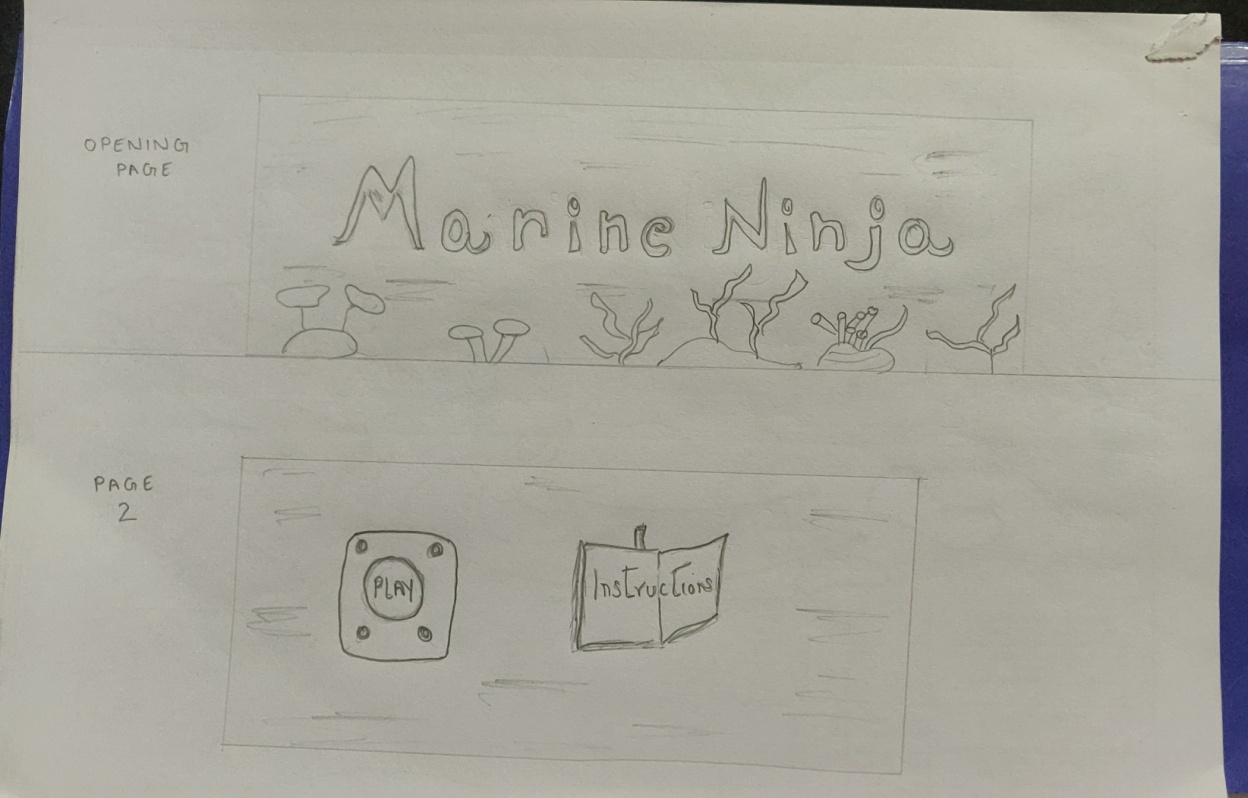 OPENING
PAGE
Marine Ninja
PAGE
2
PLAY
Instructions